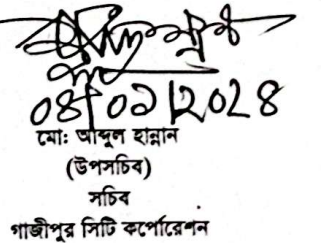 ০৪/০১/২০২৪
মো: আব্দুল হান্নান
(উপসচিব)
সচিব
গাজীপুর সিটি কর্পোরেশন